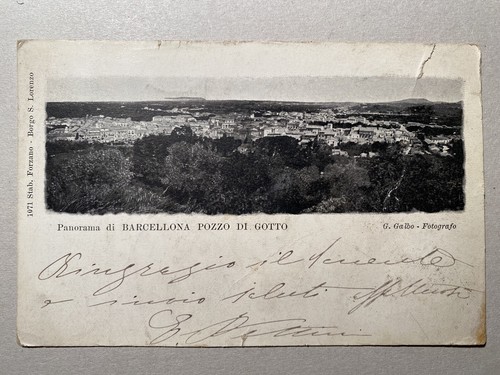 1071 Stab. Forzano - Borgo S. Lorenzo
Panorama di BARCELLONA POZZO DI GOTTO
G. Galbo - Fotografo
Ringrazio il
e invio saluti
E.